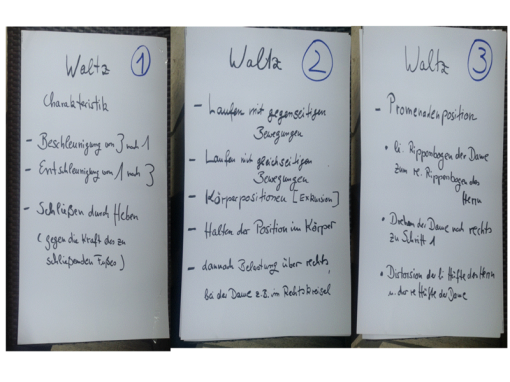 Waltz 1
Charakteristik
- Beschleunigung von 3 nach 1
- Entschleunigung von 1 nach 3
- Schließen durch Heben
( gegen die Kraft des zu
schließenden Fußes )
Waltz 2
- Laufen mit gegenseitigen
Bewegungen
- Laufen mit gleichseitigen
Bewegungen
- Körperpositionen [Exkursion]
- Halten der Position im Körper
- dannach Belastung über rechts,
bei der Dame z.B. im Rechtskreisel
Waltz 3
- Promenadenposition
• li. Rippenbogen der Dame
zum re. Rippenbogen des
Herrn
• Drehen der Dame nach rechts
zu Schritt 1
• Distorsion der li Hüfte des Herrn
u. der re Hüfte der Dame